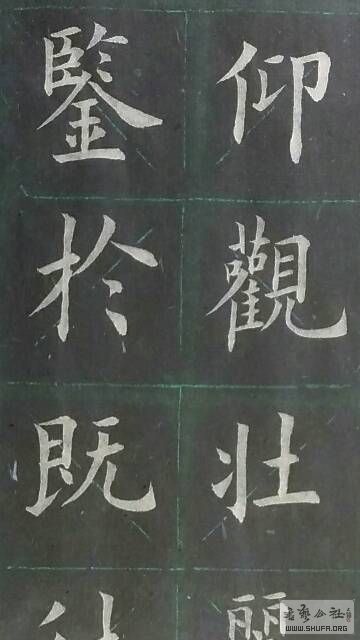 仰觀壯
鑒於既
書藝公社
WWW.SHUFA.ORG